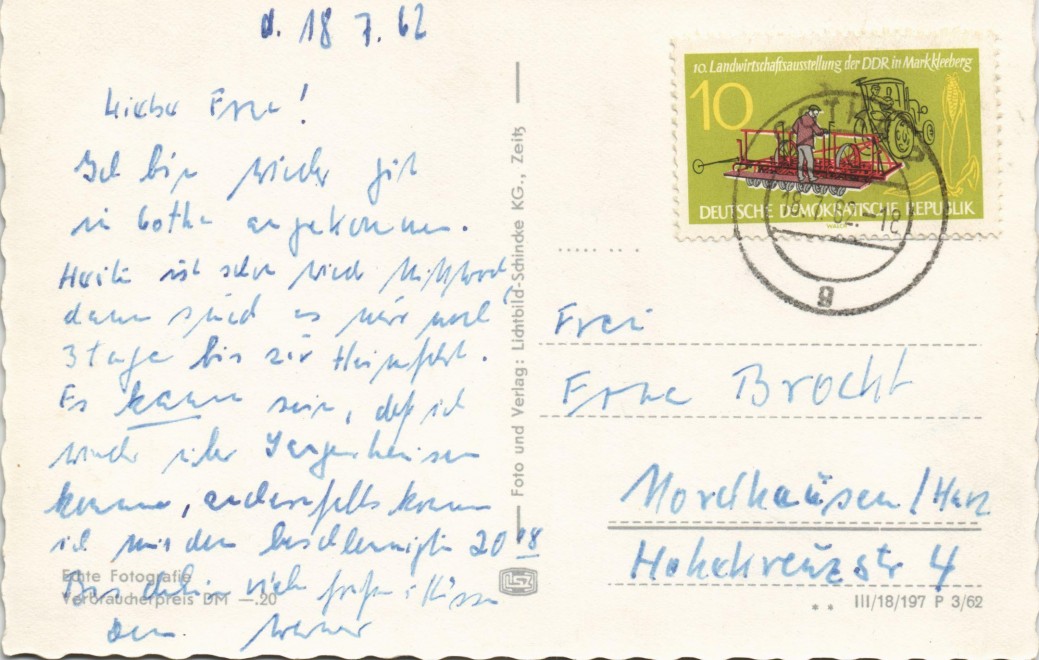 d. 18 7. 62
Liebe Erna!
Ich bin wieder gut
in Gotha angekommen.
Heute ist schon wieder Mittwoch,
dann sind es nur noch
3 Tage bis zur Heimfahrt.
Es kann sein, daß ich
wieder über Sangerhausen
komme, andernfalls komme
ich mit dem beschleunigten 20 08
Bis dahin viele Grüße + Küsse
Dein Werner
Echte Fotografie
Verbraucherpreis DM —.20
Foto und Verlag: Lichtbild-Schincke KG., Zeitz
10. Landwirtschaftsausstellung der DDR in Markkleeberg
10
DEUTSCHE DEMOKRATISCHE REPUBLIK
18.7.62.-18
g
Frau
Erna Brocht
Nordhausen/Harz
Hohekreuzstr 4
III/18/197 P 3/62